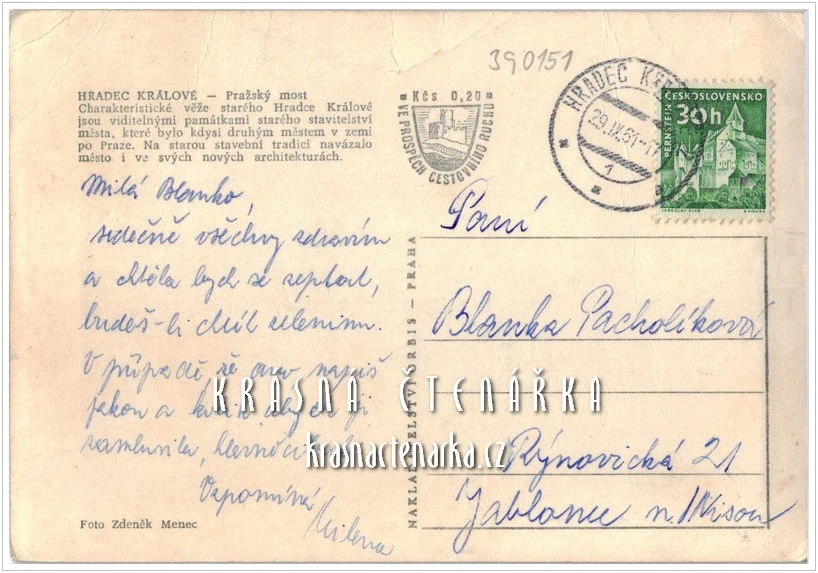 390151
HRADEC KRÁLOVÉ — Pražský most
Charakteristické věže starého Hradce Králové
jsou viditelnými památkami starého stavitelství
města, které bylo kdysi druhým městem v zemi
po Praze. Na starou stavební tradici navázalo
město i ve svých nových architekturách.
Kčs 0,20
VE PROSPĚCH CESTOVNÍHO RUCHU
HRADEC
29.IX.61-17
1
ČESKOSLOVENSKO
30h
PERNŠTEJN
Milá Blanko,
srdečně všechny zdravím
a chtěla bych se zeptat,
budeš-li chtít zeleninu.
V případě že ano napiš
jakou a kolik abych ji
zamluvila,
Vzpomíná
Milena
Foto Zdeněk Menec
NAKLADATELSTVÍ ORBIS - PRAHA
Paní
Blanka Pacholíková
Rýnovická 21
Jablonec n./Nisou
KRÁSNÁ ČTENÁŘKA
krasnactenarka.cz